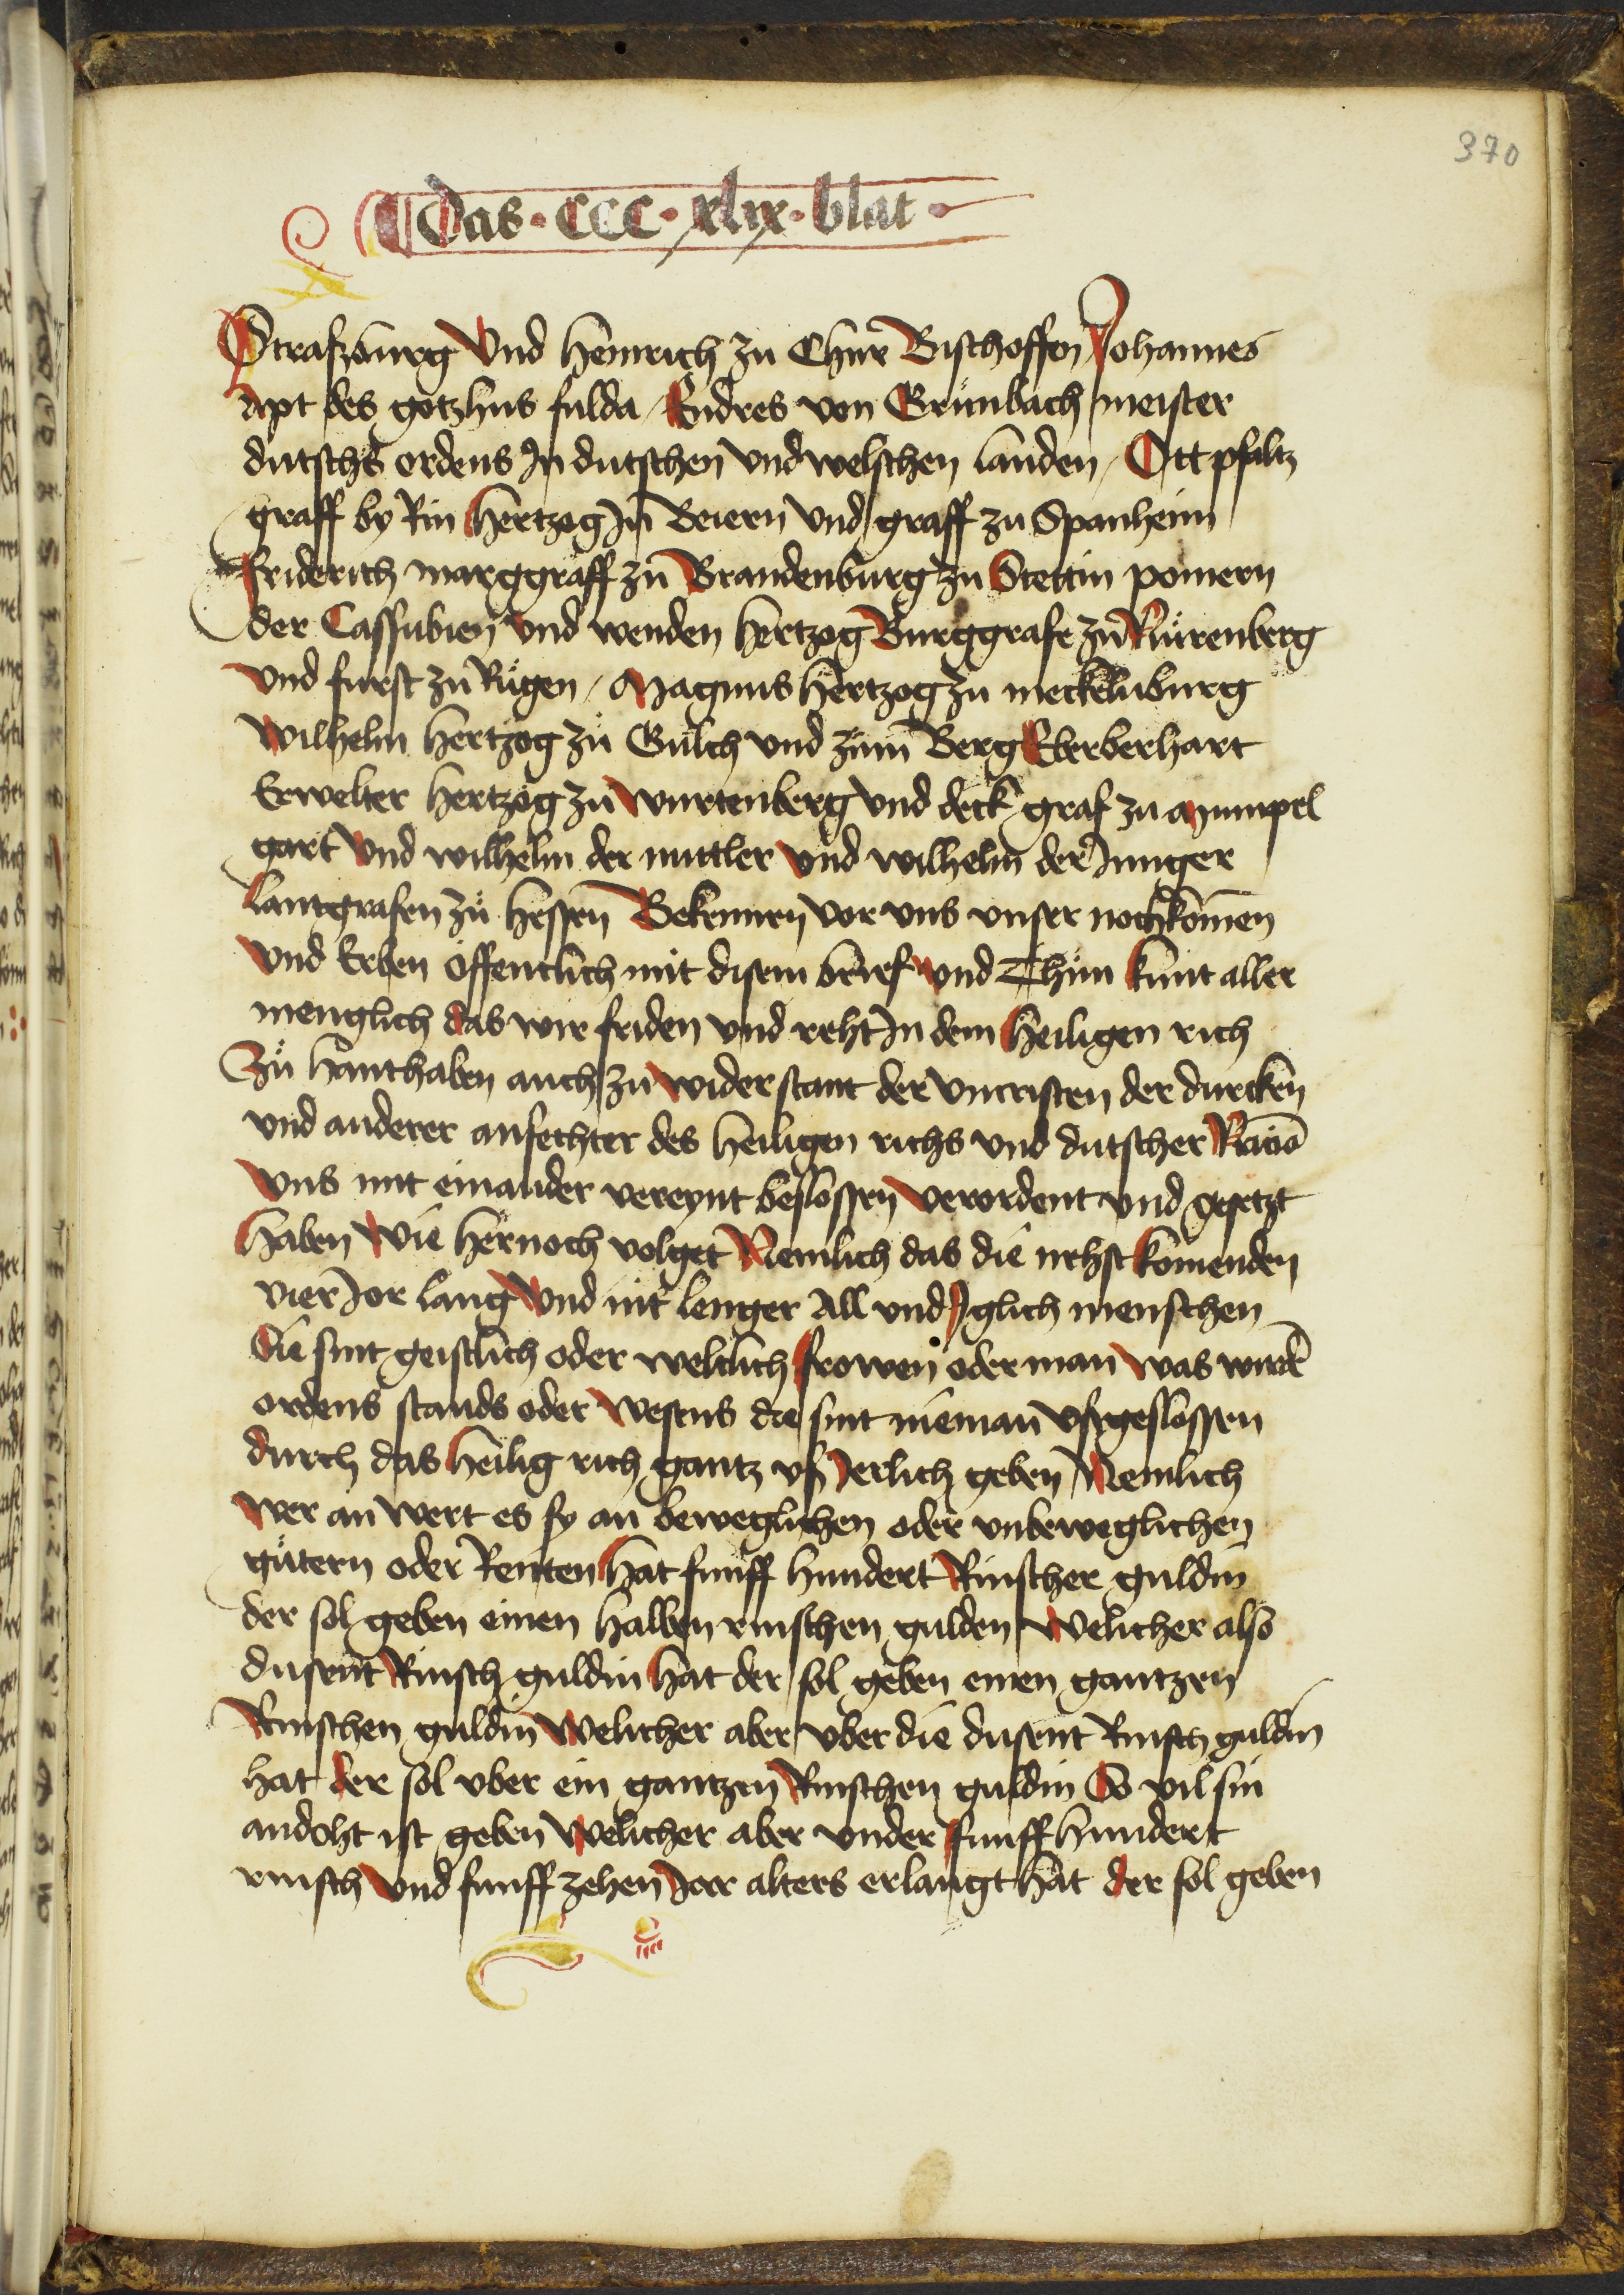 370
Das · CCC · xlix · blat ·
Straszburg Vnd Heinrich zu Chur Bischoffen Johannes
Apt des gotzhus fulda / Endres von Grünbach meister
dutschs ordens Jn dutschen vnd welschen landen / Ott pfaltz
graff by Rin Hertzog Jn Beiern vnd graff zu Spanheim
Friderich marggraff zu Brandenburg zu Stettin pomern
der Cassubien vnd wenden hertzog Burggrafe zu Nürenberg
vnd furst zu Rügen / Magnus hertzog zu meckelnburg
Wilhelm hertzog zů Gulch vnd zům Berg Eberberhart
Erwelter hertzog zu Wurtenberg vnd deck graf zu Mumpel
gart Vnd wilhelm der mittler vnd wilhelm der Junger
Lantgrafen zů hessen Bekennen vor vns vnser nochkomen
Vnd Erben offentlich mit disem brief vnd Thun kunt aller
menglich das wir friden vnd reht Jn dem Heiligen rich
Zů hanthaben auch zu Widerstant der vncristen der durcken
vnd anderer anfechter des heiligen richs vnd dutscher Nacio
Vns mit einander vereynt beslossen Verordent vnd gesetzt
Haben Wie hernoch volget Nemlich das die nehst komenden
vier Jor lang Vnd nit lenger All vnd Jglich menschen
Die sint geistlich oder weltlich frowen oder man Was wirde
ordens stands oder Wesens die sint nieman vszgeslossen
Durch das Heilig rich gantz vsz Jerlich geben Nemlich
Wer an wert es sy an beweglichen oder vnbeweglichen
gütern oder Renten Hat funff hundert Rinscher guldin
der sol geben einen halben rinschen gulden Welicher also
dusent Rinsch guldin Hat der sol geben einen gantzen
Rinschen guldin Welicher aber vber die dusent Rinsch guldin
hat der sol vber ein gantzen Rinschen guldin So vil sin
andoht ist geben Welicher aber vnder funff hundert
rinsch Vnd funffzehen Jor alters erlangt hat der sol geben